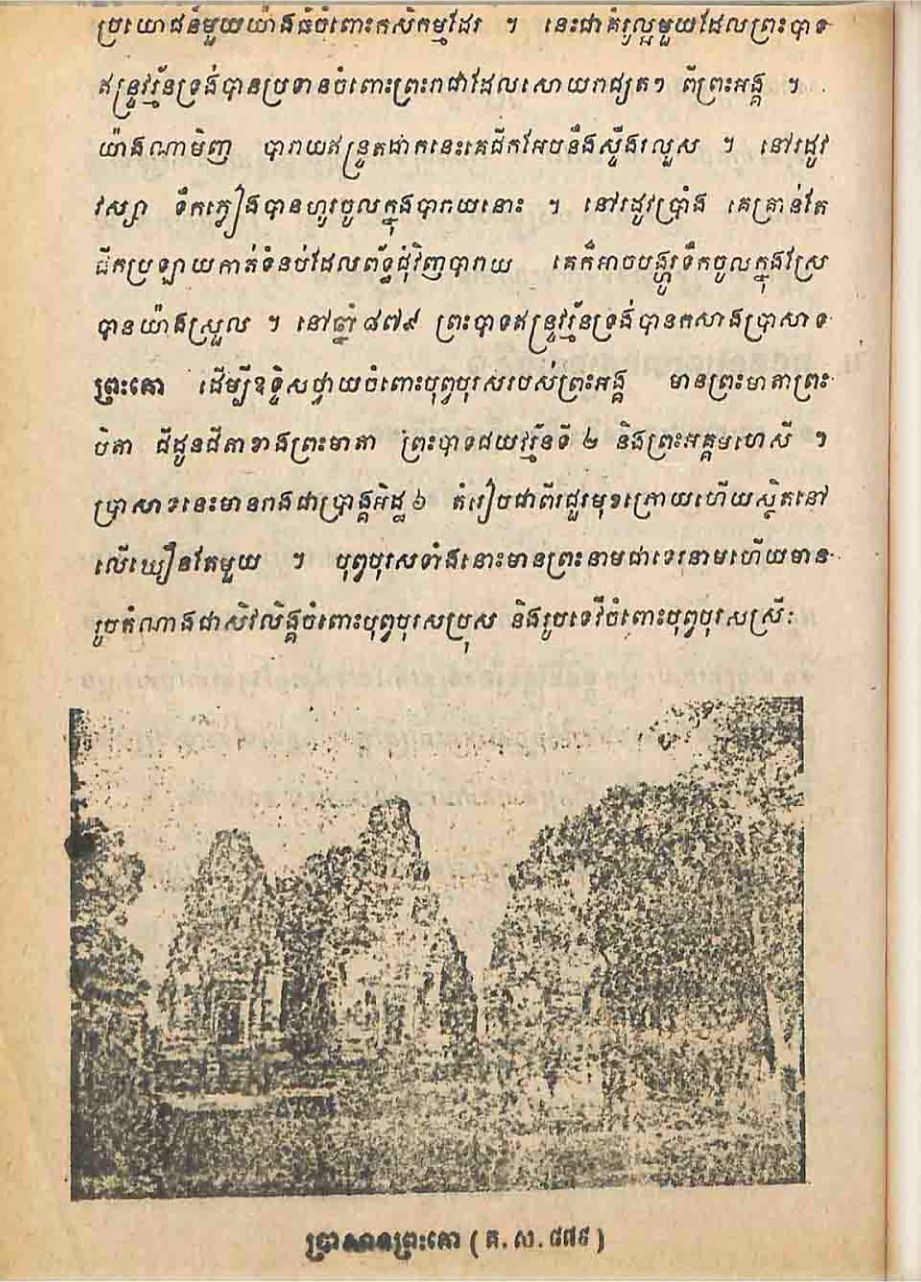 ប្រយោជន៍មួយយ៉ាងធំចំពោះកសិកម្មដែរ ។ នេះជាគំរូល្អមួយដែលព្រះបាទ
ឥន្ទ្រវរ្ម័នទ្រង់បានប្រទានចំពោះព្រះរាជាដែលសោយរាជ្យតៗ ពីព្រះអង្គ ។
យ៉ាងណាមិញ បារាយឥន្ទ្រតដាកនេះគេជីកអែបនឹងស្ទឹងរលួស ។ នៅរដូវ
វស្សា ទឹកភ្លៀងបានហូរចូលក្នុងបារាយនោះ ។ នៅរដូវប្រាំង គេគ្រាន់តែ
ជីកប្រឡាយកាត់ទំនប់ដែលព័ទ្ធជុំវិញបារាយ គេក៏អាចបង្ហូរទឹកចូលក្នុងស្រែ
បានយ៉ាងស្រួល ។ នៅឆ្នាំ ៨៧៩ ព្រះបាទឥន្ទ្រវរ្ម័នទ្រង់បានកសាងប្រាសាទ
ព្រះគោ ដើម្បីឧទ្ទិសថ្វាយចំពោះបុព្វបុរសរបស់ព្រះអង្គ មានព្រះមាតាព្រះ
បិតា ជីដូនជីតាខាងព្រះមាតា ព្រះបាទជយវរ្ម័នទី ២ និងព្រះអគ្គមហេសី ។
ប្រាសាទនេះមានរាងជាប្រាង្គអិដ្ឋ ៦ តំរៀបជាពីរជួរមុខក្រោយហើយស្ថិតនៅ
លើឃឿនតែមួយ ។ បុព្វបុរសទាំងនោះមានព្រះនាមជាទេវនាមហើយមាន
រូបតំណាងជាសិវលិង្គចំពោះបុព្វបុរសប្រុស និងរូបទេវីចំពោះបុព្វបុរសស្រីៈ
ប្រាសាទព្រះគោ ( គ. ស. ៨៧៩ )